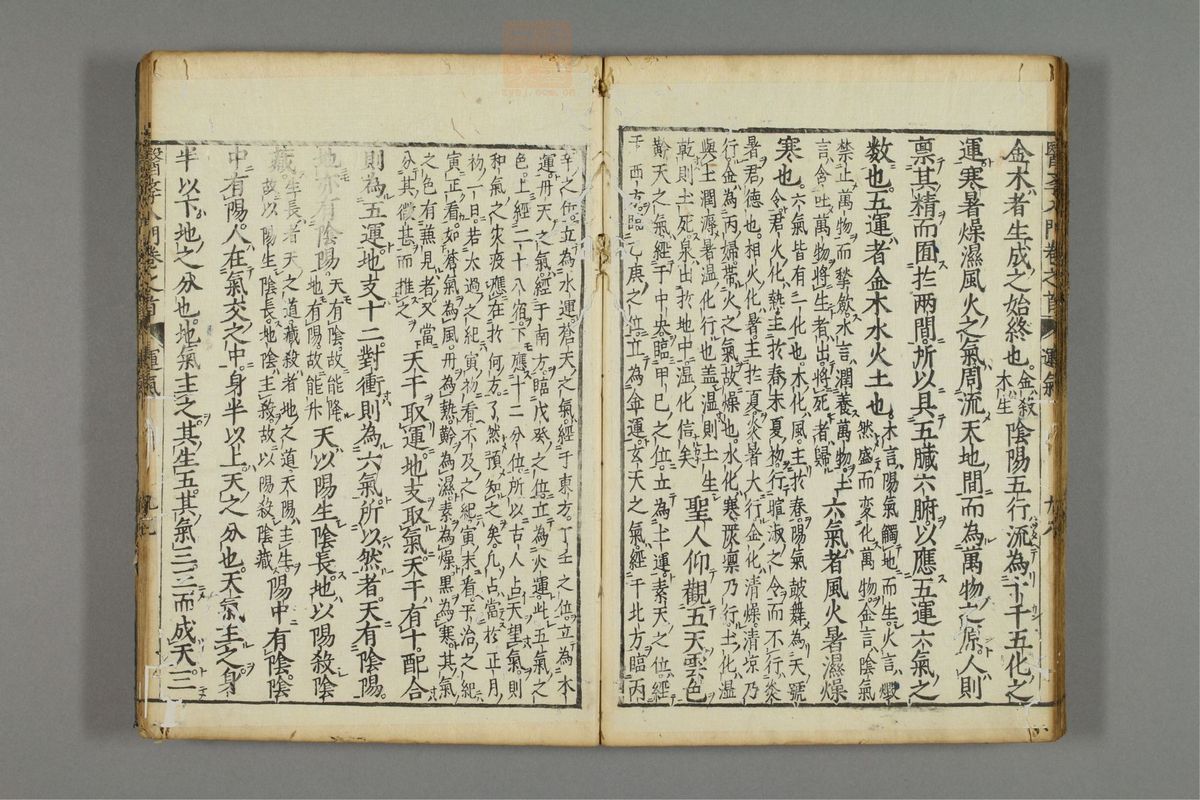 金木者生成之始終也金殺木生陰陽五行流為十干五化之
運寒暑燥濕風火之氣周流天地間而為萬物之原人則
禀其精而囿於兩間所以具五臟六腑以應五運六氣之
数也五運者金木水火土也木言陽氣觸地而生火言燬然盛而變化萬物金言陰氣
禁止萬物而揫歛水言潤養萬物土言含吐萬物將生者出將死者歸六氣者風火暑濕燥
寒也六氣皆有一化也木化風主於春陽氣鼓舞為天號令君火化熱主於春末夏初行暄淑之令而不行炎
暑君德也相火化暑主於夏炎暑大行金化清燥清凉乃行金為丙婦帶火之氣故燥也水化寒嚴凛乃行土化濕
與土潤溽暑温化行也盖湿則土生乾則土死泉出於地中湿化信矣聖人仰觀五天雲色
黅天之氣經于中央臨甲己之位立為土運素天之氣經于西方臨乙庚之位立為金運玄天之氣經于北方臨丙
辛之位立為水運蒼天之氣經于東方丁壬之位立為木運丹天之氣經于南方臨戊癸之位立為火運此五氣之
色上經二十八宿下應十二分位所以古人占天望氣則和氣之灾疫應在於何方了然預知之矣凡占當於正月
初一日若太過之紀寅初看不及之紀寅末看平治之紀寅正看如蒼氣為風丹為熱黅為濕素為燥黑為寒其氣
之色有兼見者又當分其微甚而推之天干取運地支取氣天干有十配合
則為五運地支十二對衝則為六氣所以然者天有陰陽
地亦有陰陽天有陰故能降地有陽故能升天以陽生陰長地以陽殺陰
藏生長者天之道藏殺者地之道天陽主生故以陽生陰長地陰主殺故以陽殺陰藏陽中有陰陰
中有陽人在氣交之中身半以上天之分也天氣主之身
半以下地之分也地氣主之其生五其氣三三而成天三
醫学入門卷之首 運氣
醫学入門卷之首 運氣